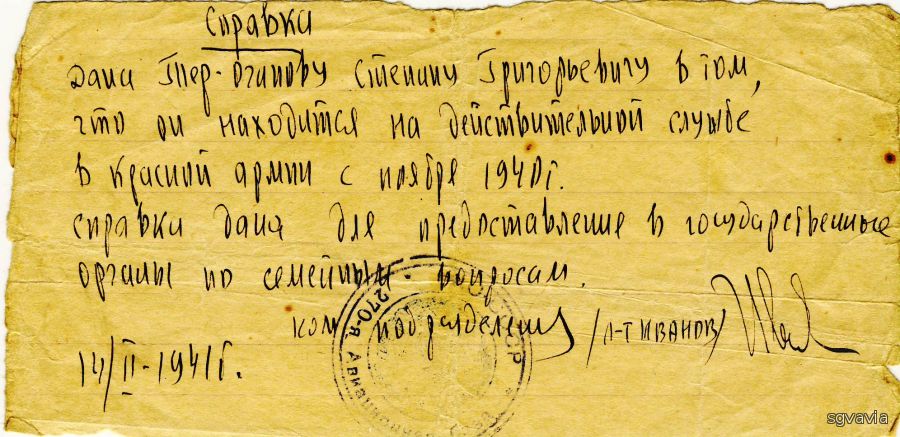 Справка
Дана Тер-Оганову Степану Григорьевичу в том,
что он находится на действительной службе
в красной армии с ноября 1940г.
Справка дана для предоставление в государственные
органы по семейным вопросам.
ком подразделения /л-т Иванов/
14/II-1941г.
270-я Авиационная
СССР
sgvavia